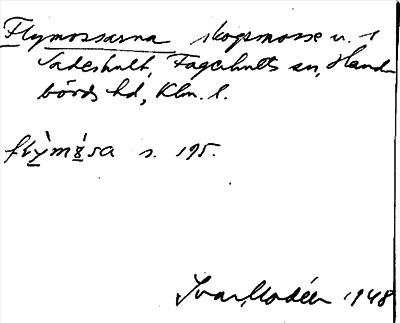 Flymossarna skogsmosse u. 1
Sadeshult, Fagerhults sn, Hand-
börds hd, Klm. l.
flỳmósa s. 195.
Ivar Modéer 1948